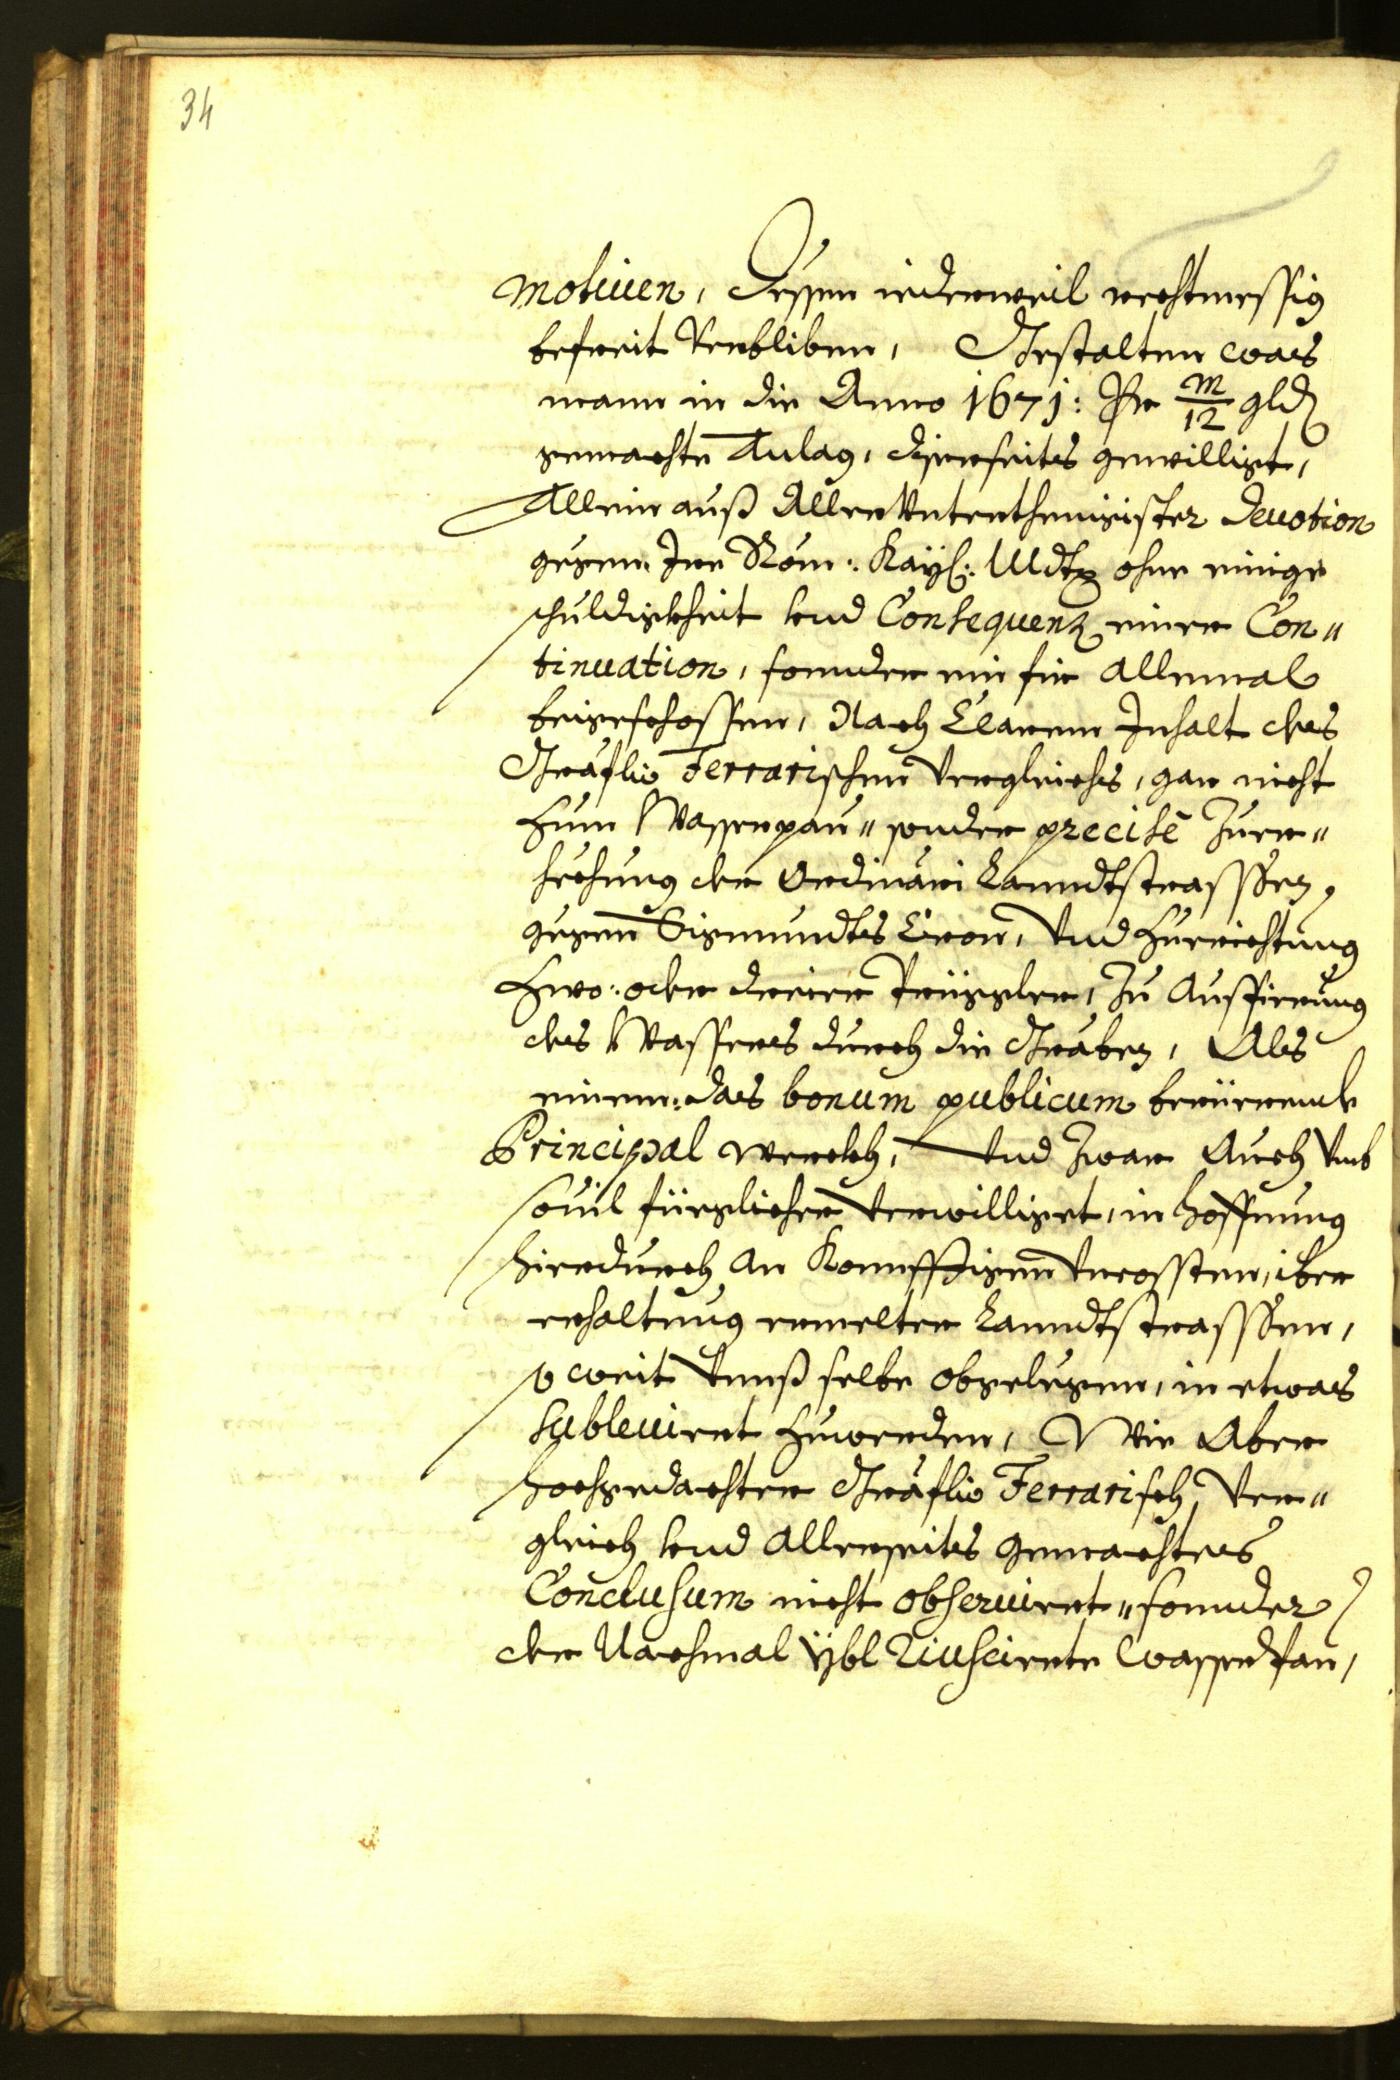 34
motiuen, dessen iederweil rechtmessig
befreit verbliben, Gestalten was
mann in die Anno 1671: Per m/12 gld
gemachte Anlag, disserseits gewilliget,
Allein auß Allervnterthenigister deuotion
gegen Irer Röm: Kaÿß: Mdt ohne einige
schuldigkheit vnd Consequenz einer Con„
tinuation, sonnder ein fir Allemal
beigeschossen, Nach Clarem Inhalt des
Gräflich Ferrarischen Vergleichs, gar nicht
zum Wasserpau„ sonder precisè Zuer„
hechung der Ordinari Lanndtstrasssen,
gegen Sigmundts Cron, Vnd Zurichtung
Zwo: oder dreier Prügglen, Zu Ausfierung
des Wassers durch die Gräben, Als
einem: das bonum publicum berüerende
Principal Werckh, Vnd Zwar Auch vmb
souil fürglicher Verwilliget, in hoffnung
hierdurch An Konfftigen Vncossten, iber
erhaltung ermelter Lanndtstrasssen,
so weit Vnnß selbe obgelegen, in etwas
subleuirt Zuwerden, Wie Aber
hochgedachter Gräflich Ferrarisch, Ver„
gleich vnd Allerseits gemachtes
Conclusum nicht obseruirt„ sonnder
der Nachmal ÿbl Riuscirte Wasserpau,